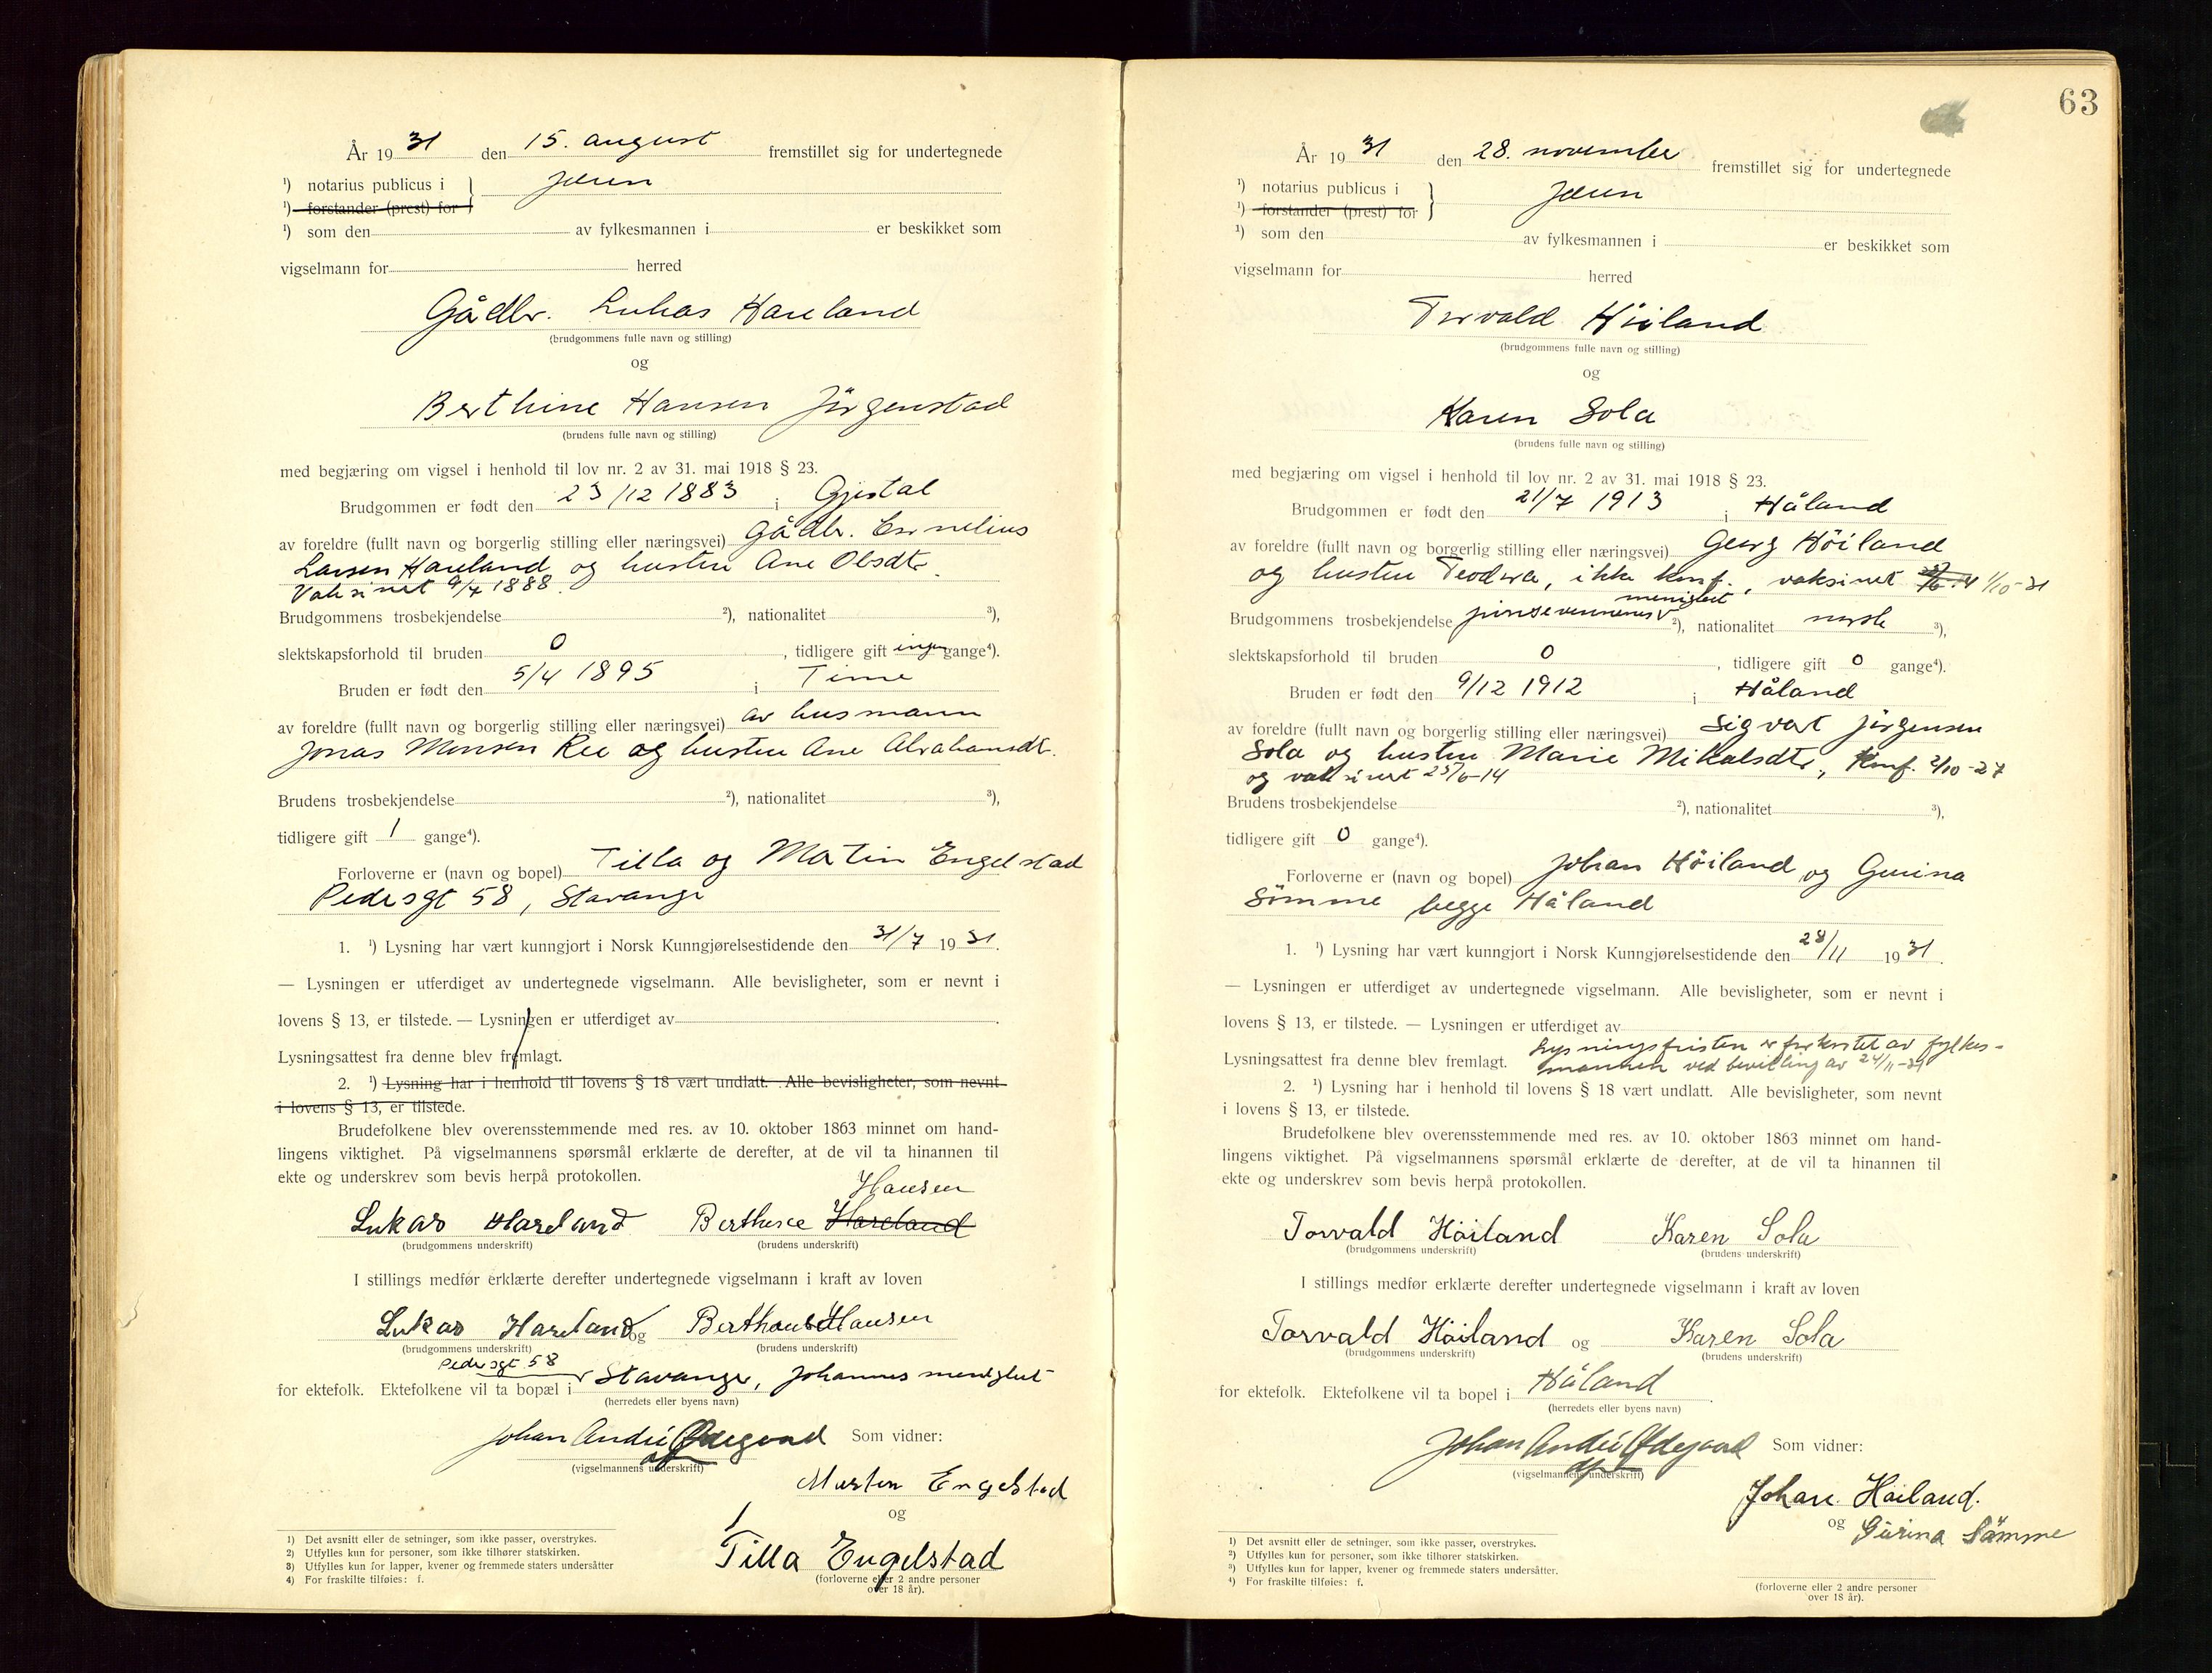 År 1931 den 15. august fremstillet sig for undertegnede
¹) notarius publicus i } Jæren
¹) forstander (prest) for
¹) som den av fylkesmannen i er beskikket som
vigselmann for herred
Gådbr. Lukas Hareland
(brudgommens fulle navn og stilling)
og
Berthine Hansen Jörgenstad
(brudens fulle navn og stilling)
med begjæring om vigsel i henhold til lov nr. 2 av 31. mai 1918 § 23.
Brudgommen er født den 23/12 1883 i Gjestal
av foreldre (fullt navn og borgerlig stilling eller næringsvei) gådbr. Cornelius
Larsen Hareland og hustru Ane Olsdtr.
Vaksinert 9/4 1888.
Brudgommens trosbekjendelse ²), nationalitet ³),
slektskapsforhold til bruden 0, tidligere gift ingen gange⁴).
Bruden er født den 5/4 1895 i Time
av foreldre (fullt navn og borgerlig stilling eller næringsvei) av husmann
Jonas Monsen Ree og hustru Ane Abrahamdtr.
Brudens trosbekjendelse ²), nationalitet ³),
tidligere gift 1 gange⁴).
Forloverne er (navn og bopel) Tilla og Martin Engelstad
Pedersgt 58, Stavanger
1. ¹) Lysning har vært kunngjort i Norsk Kunngjørelsestidende den 31/7 1931.
— Lysningen er utferdiget av undertegnede vigselmann. Alle bevisligheter, som er nevnt i
lovens § 13, er tilstede. — Lysningen er utferdiget av .
Lysningsattest fra denne blev fremlagt.
2. ¹) Lysning har i henhold til lovens § 18 vært undlatt. Alle bevisligheter, som nevnt
i lovens § 13, er tilstede.
Brudefolkene blev overensstemmende med res. av 10. oktober 1863 minnet om hand-
lingens viktighet. På vigselmannens spørsmål erklærte de derefter, at de vil ta hinannen til
ekte og underskrev som bevis herpå protokollen.
Hansen
Lukas Hareland Berthine Hareland
(brudgommens underskrift) (brudens underskrift)
I stillings medfør erklærte derefter undertegnede vigselmann i kraft av loven
Lukas Hareland og Berthine Hansen
(brudgommens underskrift) (brudens underskrift)
Pedersgt 58
for ektefolk. Ektefolkene vil ta bopæl i Stavanger, Johannes menighet
(herredets eller byens navn)
Johan André Ødegaard Som vidner:
(vigselmannens underskrift)
Morten Engelstad
og
Tilla Engelstad
(forloverne eller 2 andre personer
over 18 år).
1) Det avsnitt eller de setninger, som ikke passer, overstrykes.
2) Utfylles kun for personer, som ikke tilhører statskirken.
3) Utfylles kun for lapper, kvener og fremmede staters undersåtter
4) For fraskilte tilføies: f.
63
År 1931 den 28. november fremstillet sig for undertegnede
¹) notarius publicus i } Jæren
¹) forstander (prest) for
¹) som den av fylkesmannen i er beskikket som
vigselmann for herred
Torvald Höiland
(brudgommens fulle navn og stilling)
og
Karen Sola
(brudens fulle navn og stilling)
med begjæring om vigsel i henhold til lov nr. 2 av 31. mai 1918 § 23.
Brudgommen er født den 21/7 1913 i Håland
av foreldre (fullt navn og borgerlig stilling eller næringsvei) Georg Höiland
og hustru Teodora, ikke konf., vaksinert 1/10-31
menighet
Brudgommens trosbekjendelse pinsevennenes ²), nationalitet norsk ³),
slektskapsforhold til bruden 0, tidligere gift 0 gange⁴).
Bruden er født den 9/12 1912 i Håland
av foreldre (fullt navn og borgerlig stilling eller næringsvei) Sigvart Jörgensen
Sola og hustru Marie Mikalsdtr, Konf. 2/10-27
og vaksinert 25/6-14
Brudens trosbekjendelse ²), nationalitet ³),
tidligere gift 0 gange⁴).
Forloverne er (navn og bopel) Johan Höiland og Gurina
Sömme begge Håland
1. ¹) Lysning har vært kunngjort i Norsk Kunngjørelsestidende den 28/11 1931.
— Lysningen er utferdiget av undertegnede vigselmann. Alle bevisligheter, som er nevnt i
lovens § 13, er tilstede. — Lysningen er utferdiget av
Lysningsfristen er forkortet av fylkes-
Lysningsattest fra denne blev fremlagt. mannen ved bevilling av 24/11-31
2. ¹) Lysning har i henhold til lovens § 18 vært undlatt. Alle bevisligheter, som nevnt
i lovens § 13, er tilstede.
Brudefolkene blev overensstemmende med res. av 10. oktober 1863 minnet om hand-
lingens viktighet. På vigselmannens spørsmål erklærte de derefter, at de vil ta hinannen til
ekte og underskrev som bevis herpå protokollen.
Torvald Höiland Karen Sola
(brudgommens underskrift) (brudens underskrift)
I stillings medfør erklærte derefter undertegnede vigselmann i kraft av loven
Torvald Höiland og Karen Sola
(brudgommens underskrift) (brudens underskrift)
for ektefolk. Ektefolkene vil ta bopel i Håland.
(herredets eller byens navn)
Johan André Ødegaard Som vidner:
(vigselmannens underskrift)
Johan. Höiland.
og Gurina Sömme
(forloverne eller 2 andre personer
over 18 år).
¹) Det avsnitt eller de setninger, som ikke passer, overstrykes.
²) Utfylles kun for personer, som ikke tilhører statskirken.
³) Utfylles kun for lapper, kvener og fremmede staters undersåtter.
⁴) For fraskilte tilføies: f.